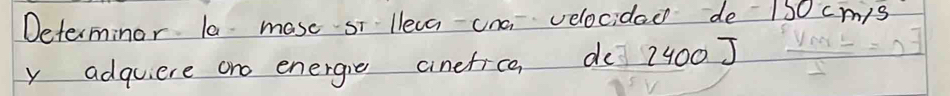 Determinar la mase si lleva una velocidad de 150 cm/s
y adquiere una energie cinetica, de 2400 J